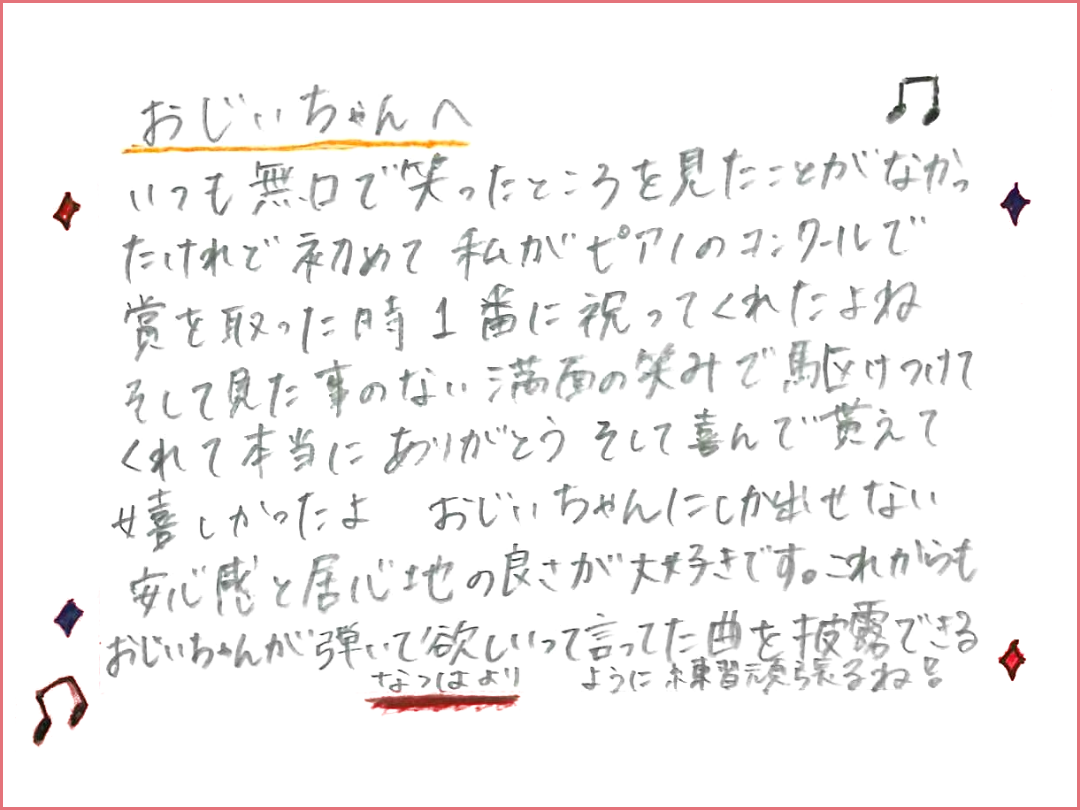 おじいちゃんへ
いつも無口で笑ったところを見たことがなかっ
たけれど初めて 私がピアノのコンクールで
賞を取った時1番に祝ってくれたよね
そして見た事のない満面の笑みで駆けつけて
くれて本当にありがとう そして喜んで貰えて
嬉しかったよ おじいちゃんにしか出せない
安心感と居心地の良さが大好きです。これからも
おじいちゃんが弾いて欲しいって言ってた曲を披露できる
ように練習頑張るね!!
なつはより